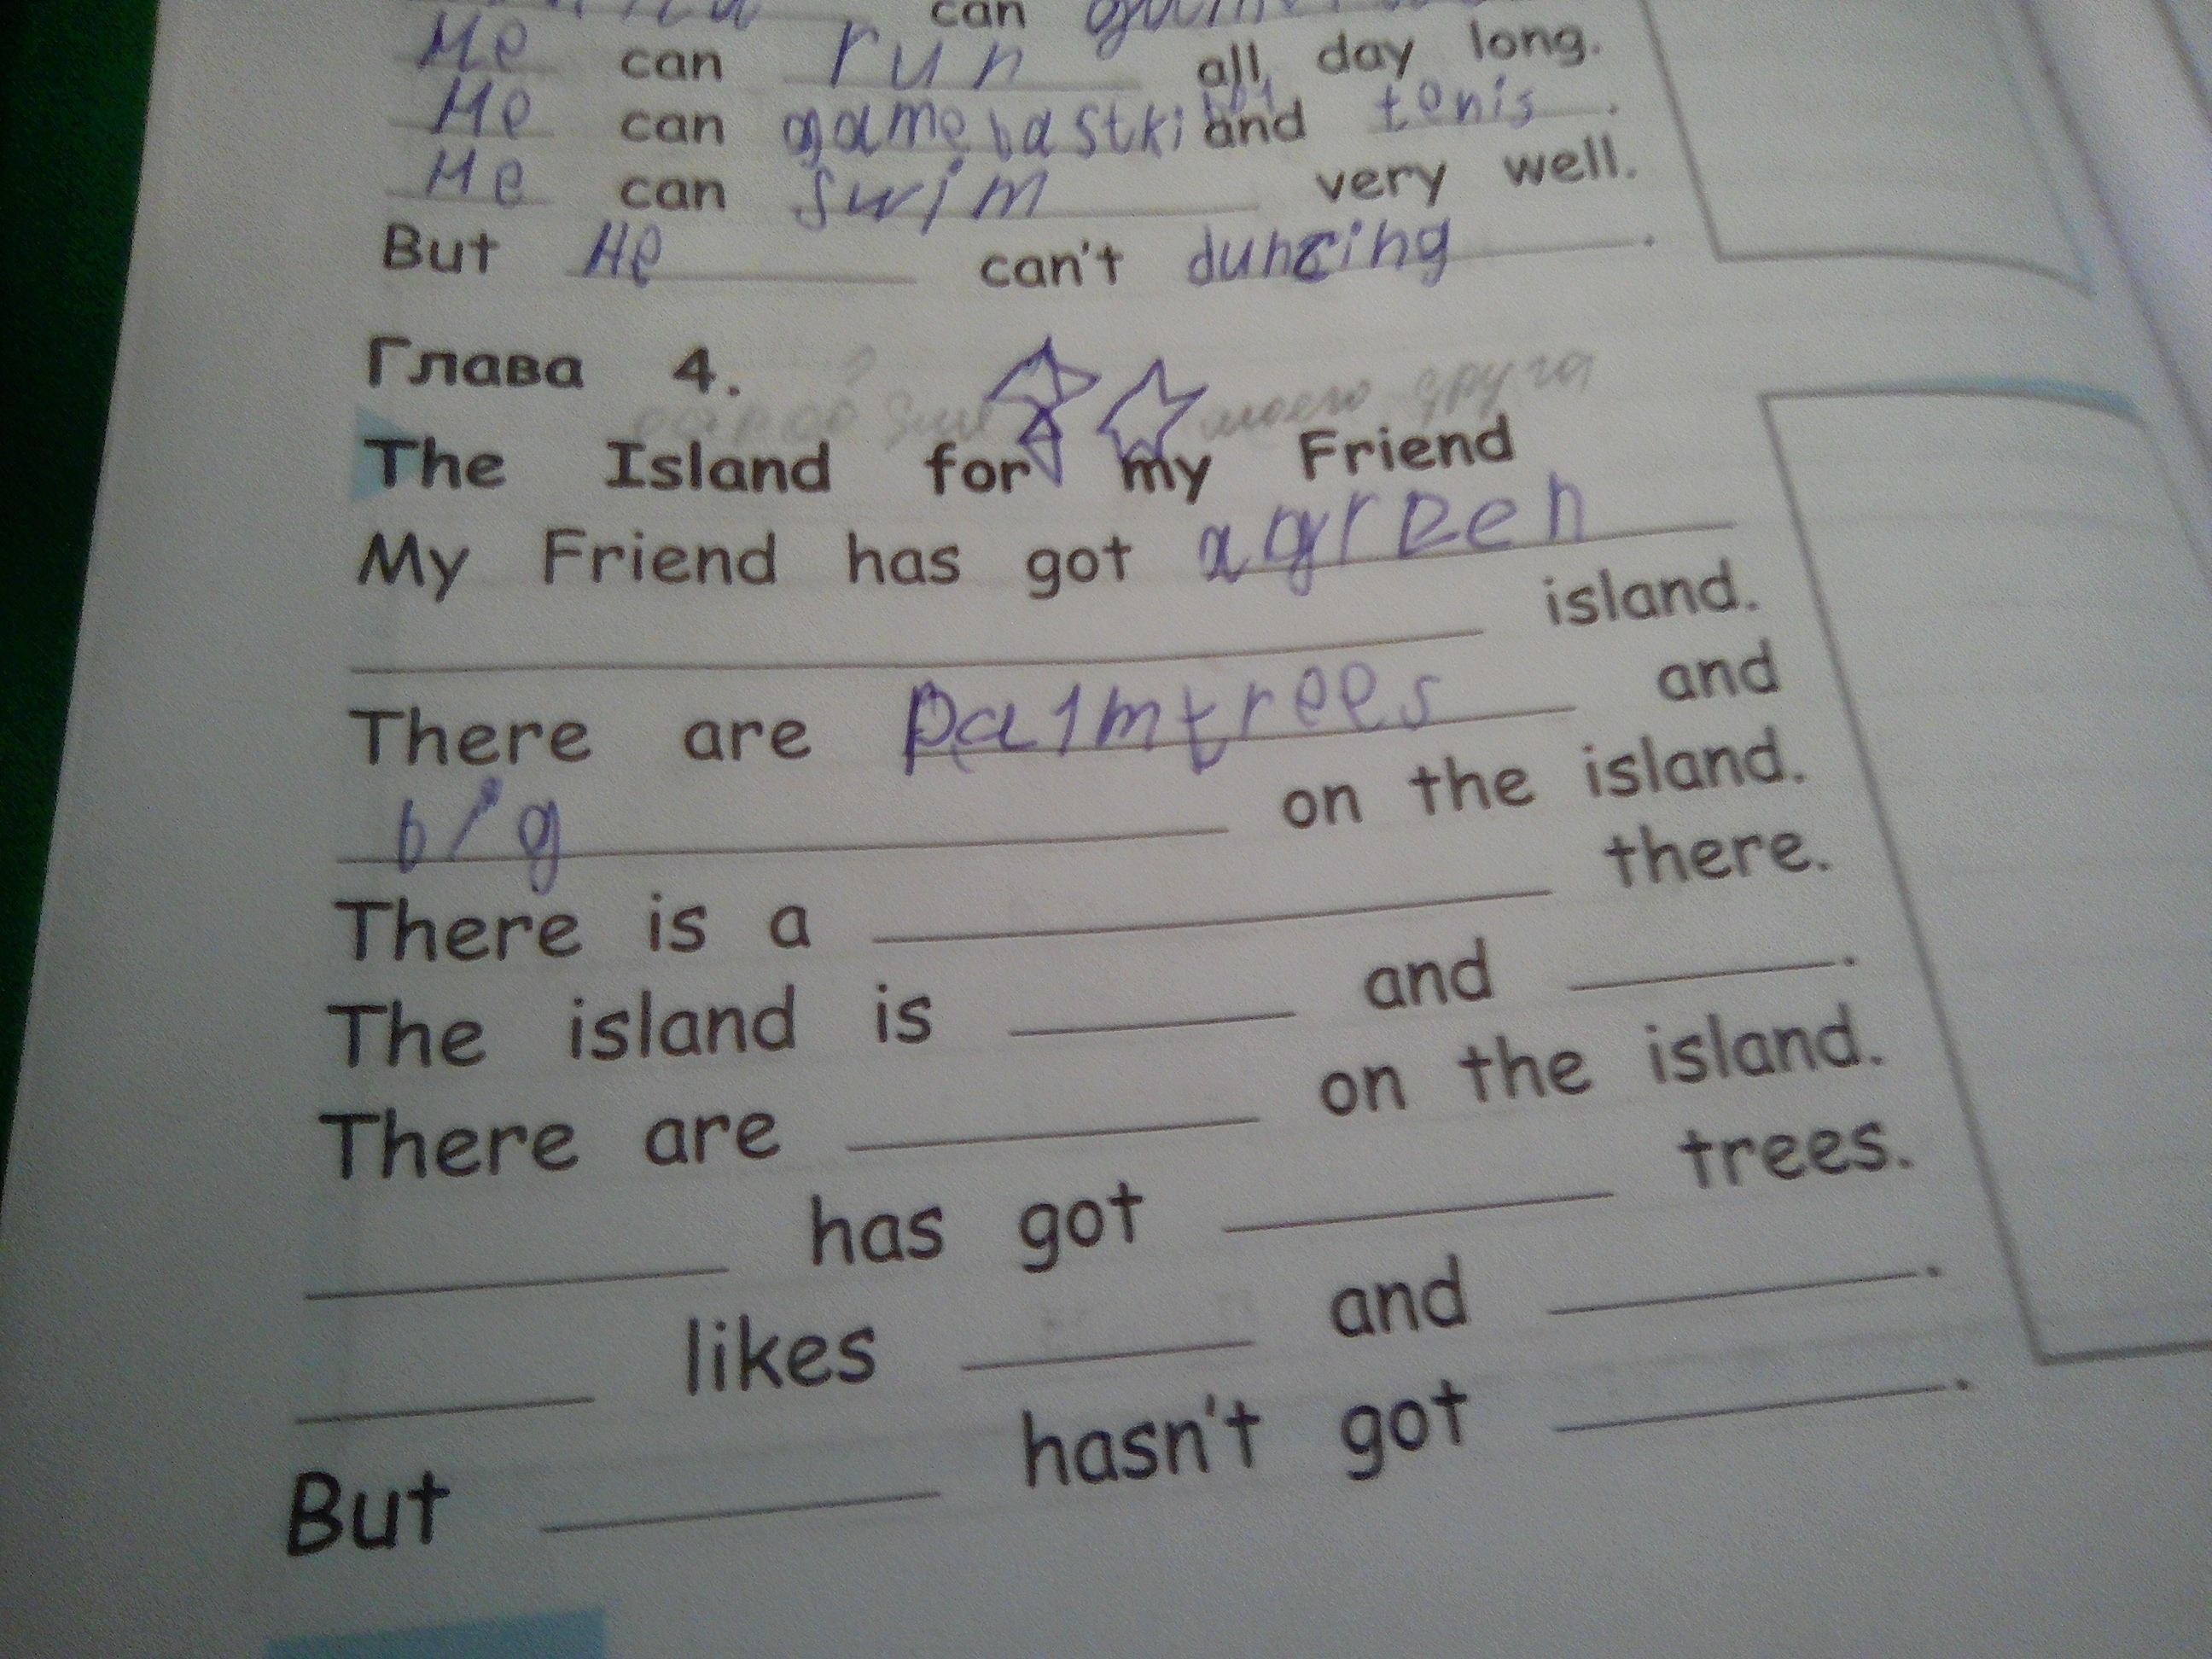 can
He can run all day long.
He can game bastki bol and tenis.
He can swim very well.
But He can't duncing.
Глава 4.
моего друга
The Island for my Friend
My Friend has got a green
island.
There are palmtrees and
big on the island.
There is a there.
The island is and .
There are on the island.
has got trees.
likes and .
But hasn't got .